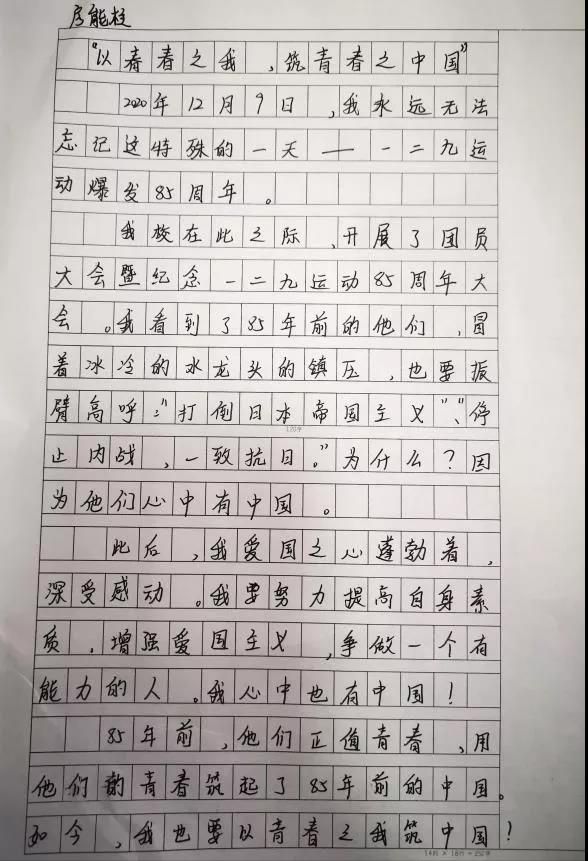 房能柱
“以青春之我,筑青春之中国”
2020年12月9日,我永远无法
忘记这特殊的一天——一二九运
动爆发85周年。
我校在此之际,开展了团员
大会暨纪念一二九运动85周年大
会。我看到了85年前的他们,冒
着冰冷的水龙头的镇压,也要振
臂高呼:“打倒日本帝国主义”、“停
止内战,一致抗日。”为什么?因
为他们心中有中国。
120字
此后,我爱国之心蓬勃着,
深受感动。我要努力提高自身素
质,增强爱国主义,争做一个有
能力的人。我心中也有中国!
85年前,他们正值青春,用
他们的青春筑起了85年前的中国。
如今,我也要以青春之我筑中国!
14列 × 18行 = 252字